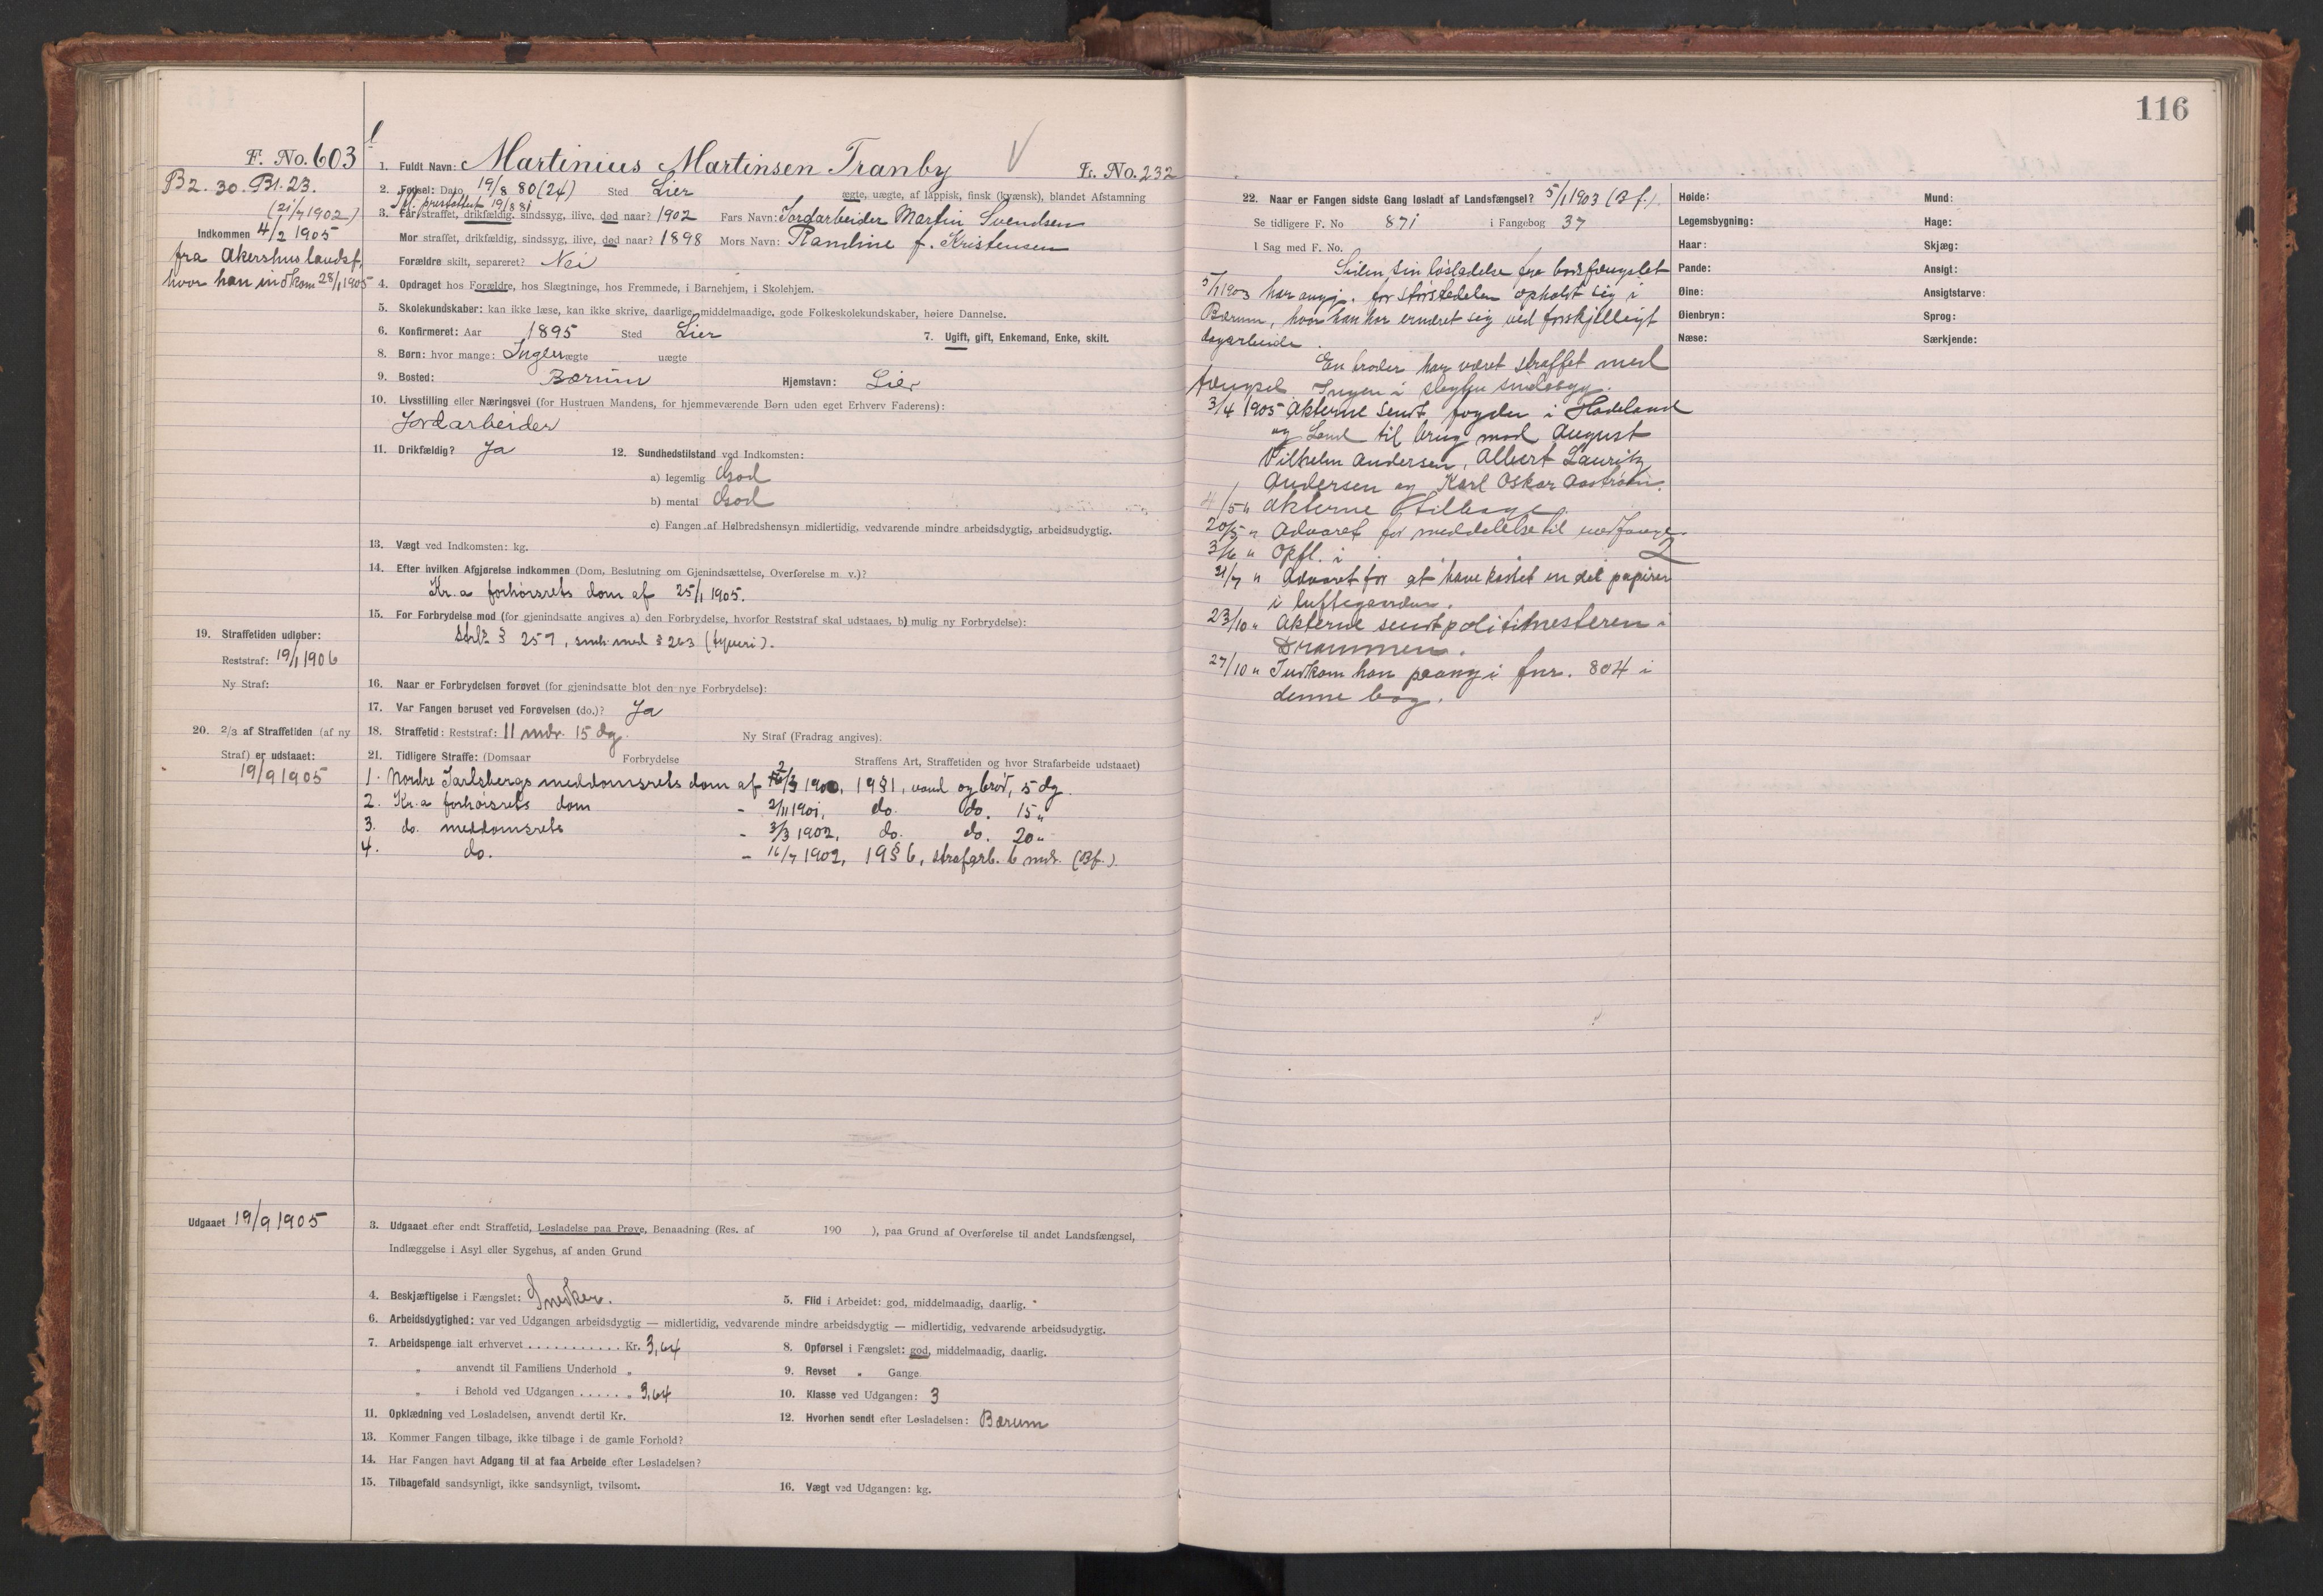 116
F. No. 603
B2. 30. Bl. 23.
(21/7 1902)
Indkommen 4/2 1905
fra Akershus landsf.
hvor han indkom 28/1 1905
1. Fuldt Navn: Martinius Martinsen Tranby
Fr. No. 232
2. Fødsel: Dato 19/8 80 (24) Sted Lier ægte, uægte, af lappisk, finsk (kvænsk), blandet Afstamning
præstattest 19/8 81
3. Far straffet, drikfældig, sindssyg, ilive, død naar? 1902 Fars Navn: Jordarbeider Martin Svendsen
Mor straffet, drikfældig, sindssyg, ilive, død naar? 1898 Mors Navn: Randine f. Kristensen
Forældre skilt, separeret? Nei
4. Opdraget hos Forældre, hos Slægtninge, hos Fremmede, i Barnehjem, i Skolehjem.
5. Skolekundskaber: kan ikke læse, kan ikke skrive, daarlige, middelmaadige, gode Folkeskolekundskaber, høiere Dannelse.
6. Konfirmeret: Aar 1895 Sted Lier 7. Ugift, gift, Enkemand, Enke, skilt.
8. Børn: hvor mange: Ingen ægte uægte
9. Bosted: Bærum Hjemstavn: Lier
10. Livsstilling eller Næringsvei (for Hustruen Mandens, for hjemmeværende Børn uden eget Erhverv Faderens):
Jordarbeider
11. Drikfældig? Ja 12. Sundhedstilstand ved Indkomsten:
a) legemlig God
b) mental God
c) Fangen af Helbredshensyn midlertidig, vedvarende mindre arbeidsdygtig, arbeidsudygtig.
13. Vægt ved Indkomsten: kg.
14. Efter hvilken Afgjørelse indkommen (Dom, Beslutning om Gjenindsættelse, Overførelse m. v.)?
Kr.a forhørsrets dom af 25/1 1905.
15. For Forbrydelse mod (for gjenindsatte angives a) den Forbrydelse, hvorfor Reststraf skal udstaaes, b) mulig ny Forbrydelse):
Strl. § 257, smh. med § 263 (tyveri).
19. Straffetiden udløber:
Reststraf: 19/1 1906
Ny Straf:
16. Naar er Forbrydelsen forøvet (for gjenindsatte blot den nye Forbrydelse):
17. Var Fangen beruset ved Forøvelsen (do.)? Ja
20. 2/3 af Straffetiden (af ny
Straf) er udstaaet:
19/9 1905
18. Straffetid: Reststraf: 11 mdr. 15 dg. Ny Straf (Fradrag angives):
21. Tidligere Straffe: (Domsaar Forbrydelse Straffens Art, Straffetiden og hvor Strafarbeide udstaaet)
1. Nordre Jarlsbergs meddomsrets dom af 2/3 1900, 19 § 1, vand og brød, 5 dg.
2. Kr.a forhørsrets dom - 2/11 1901, do. do. 15 "
3. do. meddomsrets - 3/3 1902, do. do. 20 "
4. do. - 16/7 1902, 19 § 6, strafarb. 6 mdr. (Bf.)
Udgaaet 19/9 1905
3. Udgaaet efter endt Straffetid, Løsladelse paa Prøve, Benaadning (Res. af 190 ), paa Grund af Overførelse til andet Landsfængsel,
Indlæggelse i Asyl eller Sygehus, af anden Grund
4. Beskjæftigelse i Fængslet: Snedker. 5. Flid i Arbeidet: god, middelmaadig, daarlig.
6. Arbeidsdygtighed: var ved Udgangen arbeidsdygtig — midlertidig, vedvarende mindre arbeidsdygtig — midlertidig, vedvarende arbeidsudygtig.
7. Arbeidspenge ialt erhvervet . . . . . . . . . . . Kr. 3,64 8. Opførsel i Fængslet: god, middelmaadig, daarlig.
" anvendt til Familiens Underhold " 9. Revset " Gange
" i Behold ved Udgangen . . . . . . " 3,64 10. Klasse ved Udgangen: 3
11. Opklædning ved Løsladelsen, anvendt dertil Kr. 12. Hvorhen sendt efter Løsladelsen: Bærum
13. Kommer Fangen tilbage, ikke tilbage i de gamle Forhold?
14. Har Fangen havt Adgang til at faa Arbeide efter Løsladelsen?
15. Tilbagefald sandsynligt, ikke sandsynligt, tvilsomt. 16. Vægt ved Udgangen: kg.
22. Naar er Fangen sidste Gang løsladt af Landsfængsel? 5/1 1903 (Bf.)
Se tidligere F. No 871 i Fangebog 37
I Sag med F. No.
Siden sin løsladelse fra bodsfængslet
5/1 1903 har angj. for størstedelen opholdt sig i
Bærum, hvor han har ernæret sig ved forskjelligt
dagarbeide.
En broder har været straffet med
fængsel. Ingen i slegten sindssyg.
3/4 1905 Akterne sendt fogden i Hadeland
og Land til brug mod August
Vilhelm Andersen, Albert Lauritz
Andersen og Karl Oskar Aastrøm.
4/5 " Akterne tilbage.
20/5 " Advaret for meddelelse til medfange.
3/6 " Opfl. i 2
31/7 " Advaret for at have kastet en del papirer
i luftegaarden.
23/10 " Akterne sendt politimesteren i
Drammen.
27/10 " Indkom han paany i fnr. 804 i
denne bog.
Høide:
Legemsbygning:
Haar:
Pande:
Øine:
Øienbryn:
Næse:
Mund:
Hage:
Skjæg:
Ansigt:
Ansigtstarve:
Sprog:
Særkjende: